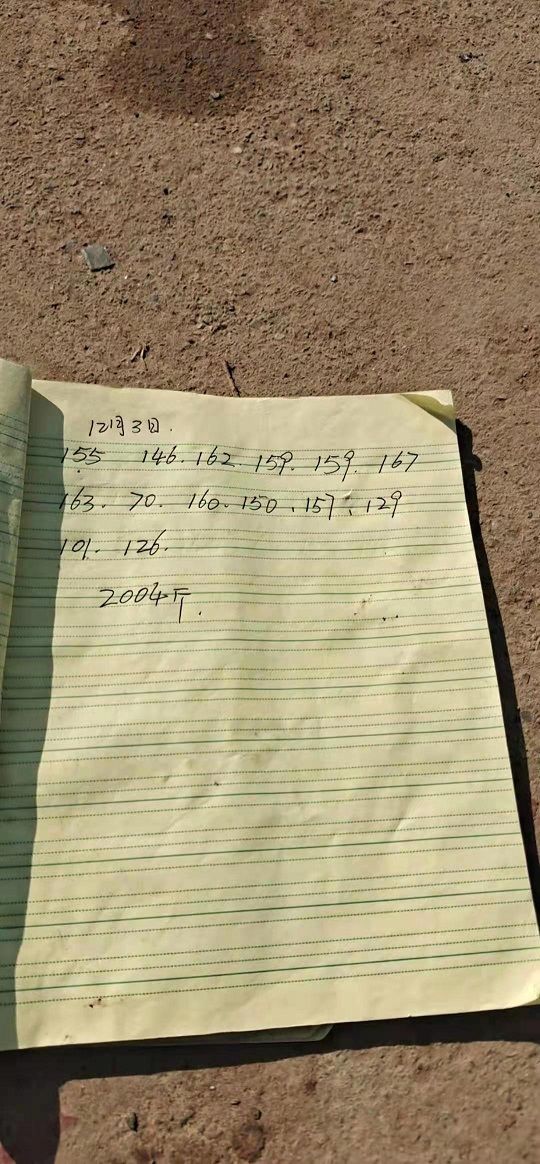 12月3日.
155 146. 162. 159. 159. 167
163. 70. 160. 150、157、129
101. 126.
2004斤.